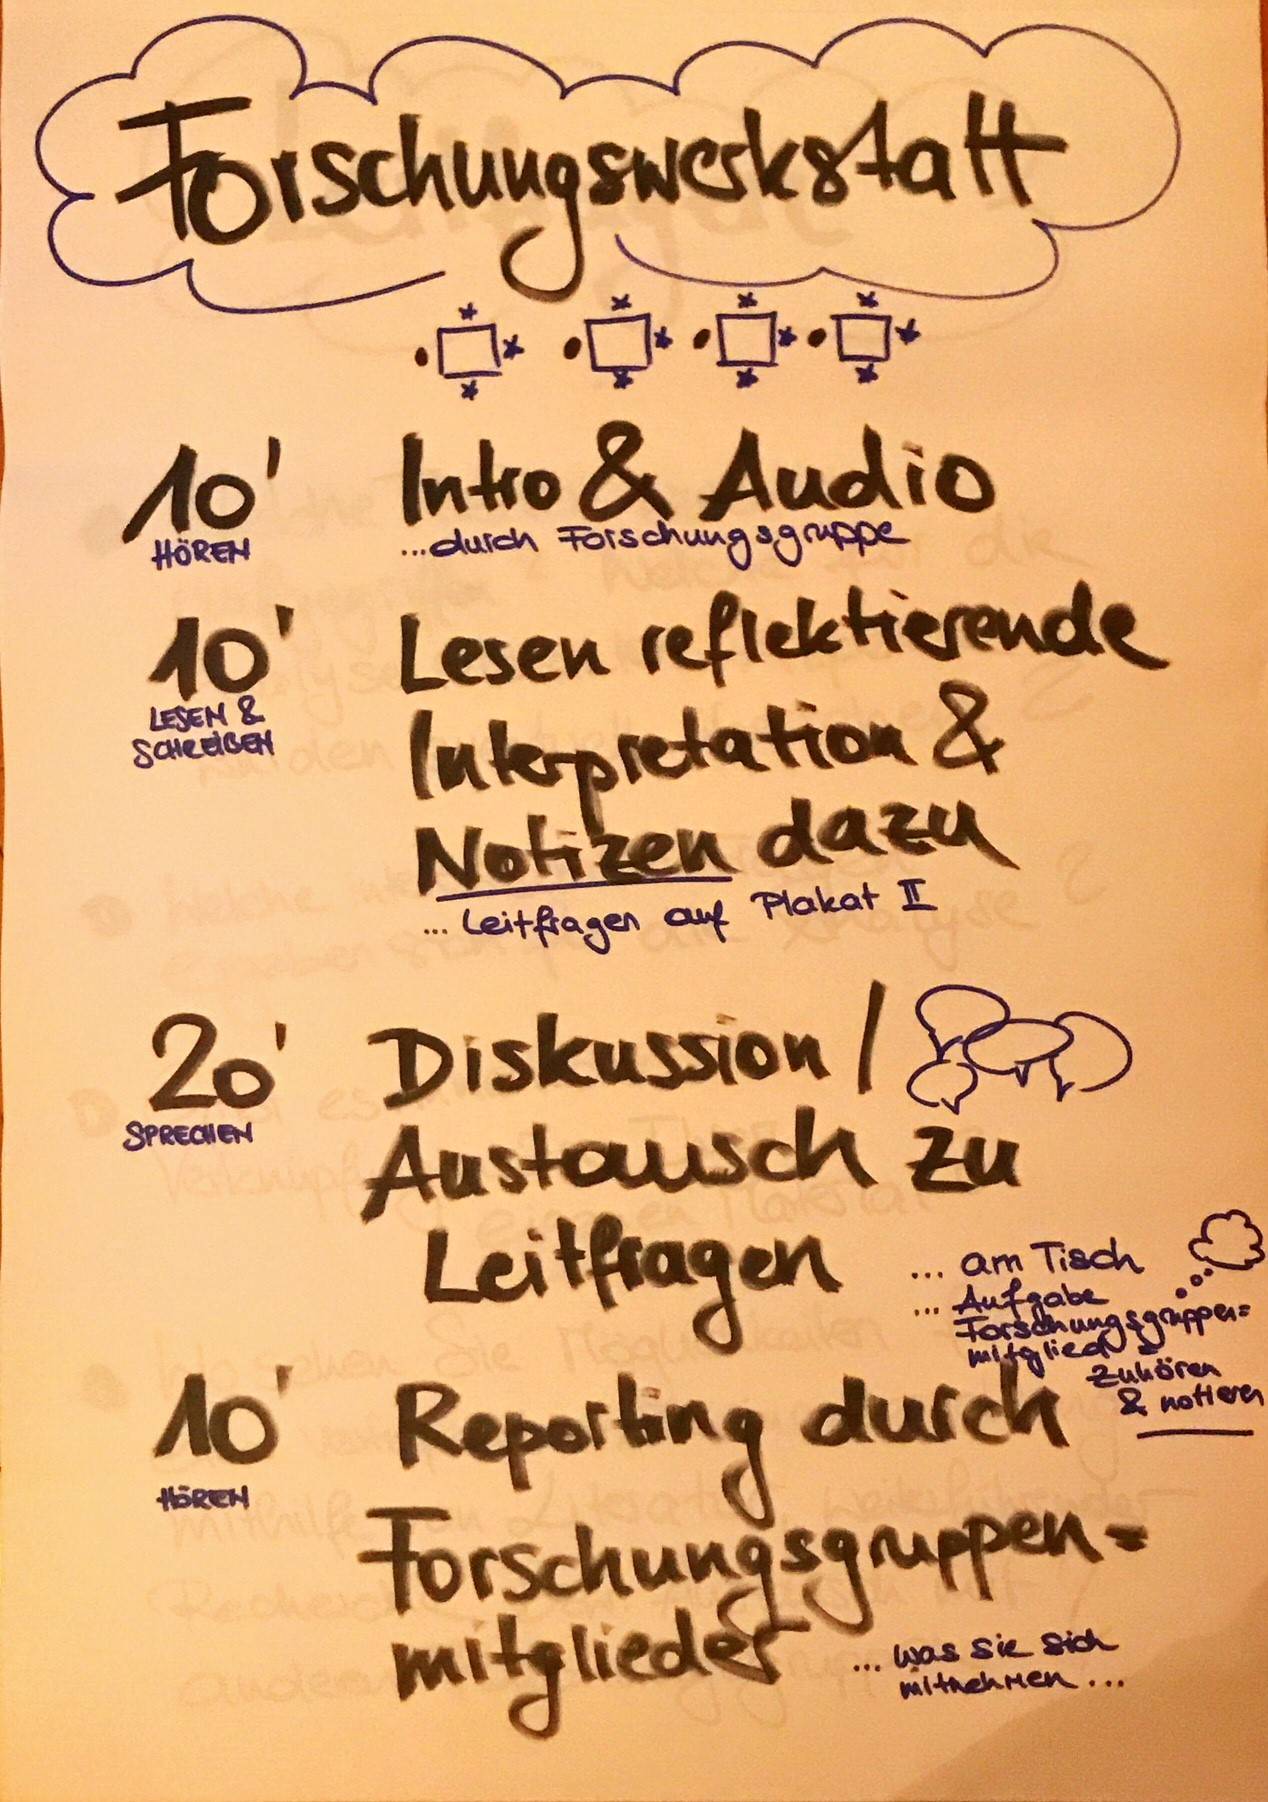 Forschungswerkstatt
10' Intro & Audio
HÖREN ...durch Forschungsgruppe
10' Lesen reflektierende
LESEN &
SCHREIBEN
Interpretation &
Notizen dazu
... Leitfragen auf Plakat II
20' Diskussion /
SPRECHEN
Austausch zu
Leitfragen
... am Tisch
... Aufgabe
Forschungsgruppen=
mitglied
zuhören
& notieren
10' Reporting durch
HÖREN
Forschungsgruppen=
mitglieder
... was sie sich
mitnehmen ...